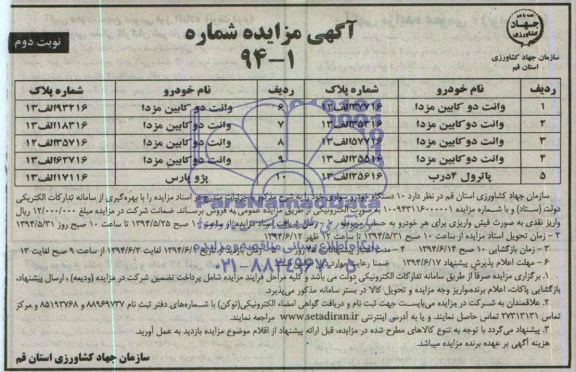 جهاد کشاورزی
سازمان جهاد کشاورزی
استان قم
آگهی مزایده شماره
۹۴-۱
نوبت دوم
ردیف نام خودرو شماره پلاک ردیف نام خودرو شماره پلاک
۱ وانت دو کابین مزدا ۶ وانت دو کابین مزدا
۲ وانت دو کابین مزدا ۷ وانت دو کابین مزدا
۳ وانت دو کابین مزدا ۸ وانت دو کابین مزدا
۴ وانت دو کابین مزدا ۹ وانت دو کابین مزدا
۵ پاترول ۴درب ۱۰ پژو پارس
سازمان جهاد کشاورزی استان قم در نظر دارد ۱۰ دستگاه خودرو اسناد مزایده را با بهره‌گیری از سامانه تدارکات الکتریکی
دولت (ستاد) و با شماره مزایده به صورت الکترونیکی از طریق مزایده عمومی به فروش برساند. ضمانت شرکت در مزایده مبلغ ۱۲/۰۰۰/۰۰۰ ریال
واریز نقدی به صورت فیش واریزی برای هر خودرو ۱۰ صبح ۱۳۹۴/۵/۲۵ تا ساعت ۱۰ صبح روز ۱۳۹۴/۵/۳۱
۲ - زمان تحویل اسناد مزایده از ساعت ۱۰ صبح ۱۳۹۴/۵/۳۱ تا ساعت ۱۲ ظهر ۱۳۹۴/۶/۱۲
۴ - زمان بازگشایی ۱۰ صبح ۱۳۹۴/۶/۱۴ لغایت ۱۳۹۴/۶/۲ از ساعت ۹ صبح لغایت ۱۳
۶ - مهلت اعلام پذیرش پیشنهاد ۱۳۹۴/۶/۱۷
۱. برگزاری مزایده صرفاً از طریق سامانه تدارکات الکترونیکی دولت می باشد و کلیه مراحل فرایند مزایده شامل پرداخت تضمین شرکت در مزایده (ودیعه)، ارسال پیشنهاد،
بازگشایی پاکات، اعلام برنده، واریز وجه مزایده و تحویل کالا در بستر سامانه مذکور می‌پذیرد.
۲. علاقمندان به شرکت در مزایده می‌بایست جهت ثبت نام و دریافت گواهی امضاء الکترونیکی(توکن) با شماره‌های دفتر ثبت نام ۸۸۹۶۹۷۳۷ و ۸۵۱۹۳۷۶۸ و مرکز
تماس ۲۷۳۱۳۱۳۱ تماس حاصل نمایند. و یا به آدرس اینترنتی www.setadiran.ir مراجعه نمایند.
۳. پیشنهاد می‌گردد با توجه به تنوع کالاهای مطرح شده در مزایده، قبل ارائه پیشنهاد از اقلام موضوع مزایده بازدید به عمل آورید.
هزینه آگهی بر عهده برنده مزایده میباشد.
سازمان جهاد کشاورزی استان قم
ParsNamadData
پایگاه اطلاع رسانی مناقصه و مزایده
۰۲۱-۸۸۳۴۹۶۷۰-۵